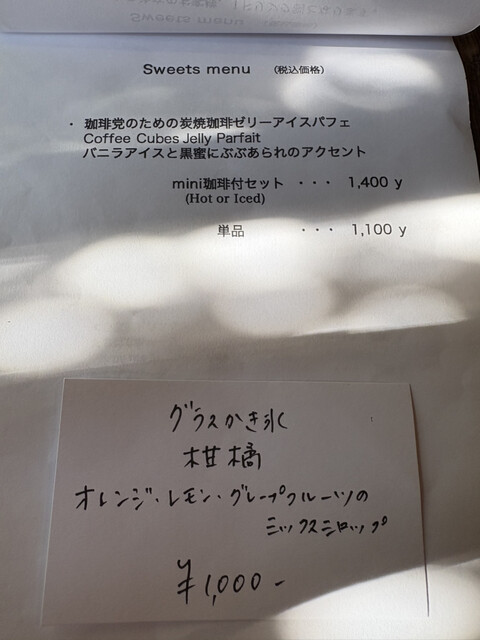 Sweets menu （税込価格）
・ 珈琲党のための炭焼珈琲ゼリーアイスパフェ
Coffee Cubes Jelly Parfait
バニラアイスと黒蜜にぶぶあられのアクセント
mini珈琲付セット ・・・ 1,400 y
(Hot or Iced)
単品 ・・・ 1,100 y
グラスかき氷
柑橘
オレンジ・レモン・グレープフルーツの
ミックスシロップ
¥1,000-